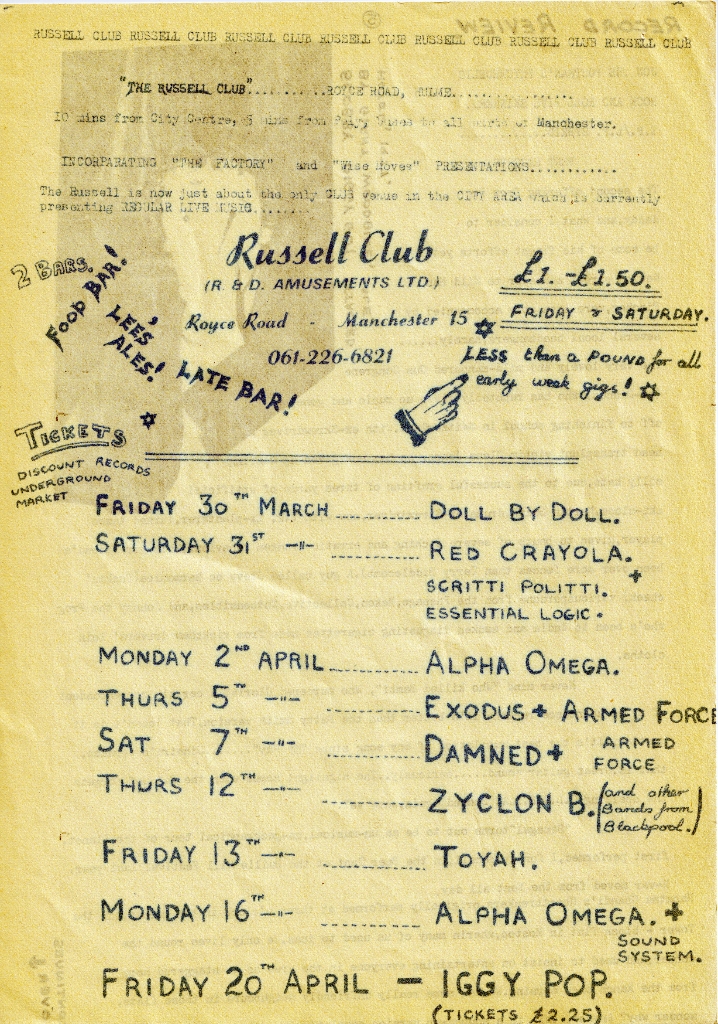 RUSSELL CLUB RUSSELL CLUB RUSSELL CLUB RUSSELL CLUB RUSSELL CLUB RUSSELL CLUB RUSSELL CLUB
"THE RUSSELL CLUB"............ROYCE ROAD, HULME..................
10 mins from City Centre, 5 mins from Buses to all parts of Manchester.
INCORPARATING "THE FACTORY" and "Wise Moves" PRESENTATIONS............
The Russell is now just about the only CLUB venue in the CITY AREA which is currently
presenting REGULAR LIVE MUSIC........
2 BARS.
FOOD BAR!
LEES'
ALES!
LATE BAR!
Russell Club
(R. & D. AMUSEMENTS LTD.)
Royce Road - Manchester 15
061-226-6821
£1. - £1.50.
FRIDAY & SATURDAY.
LESS than a POUND for all
early week gigs!
TICKETS
DISCOUNT RECORDS
UNDERGROUND
MARKET
FRIDAY 30TH MARCH ........ DOLL BY DOLL.
SATURDAY 31ST -"- ........ RED CRAYOLA.
+
SCRITTI POLITTI.
ESSENTIAL LOGIC.
MONDAY 2ND APRIL ........ ALPHA OMEGA.
THURS 5TH -"- ........ EXODUS + ARMED FORCE
SAT 7TH -"- ........ DAMNED + ARMED
FORCE
THURS 12TH -"- ........ ZYCLON B. (and other
Bands from
Blackpool.)
FRIDAY 13TH -"- ........ TOYAH.
MONDAY 16TH -"- ........ ALPHA OMEGA. +
SOUND
SYSTEM.
FRIDAY 20TH APRIL - IGGY POP.
(TICKETS £2.25)